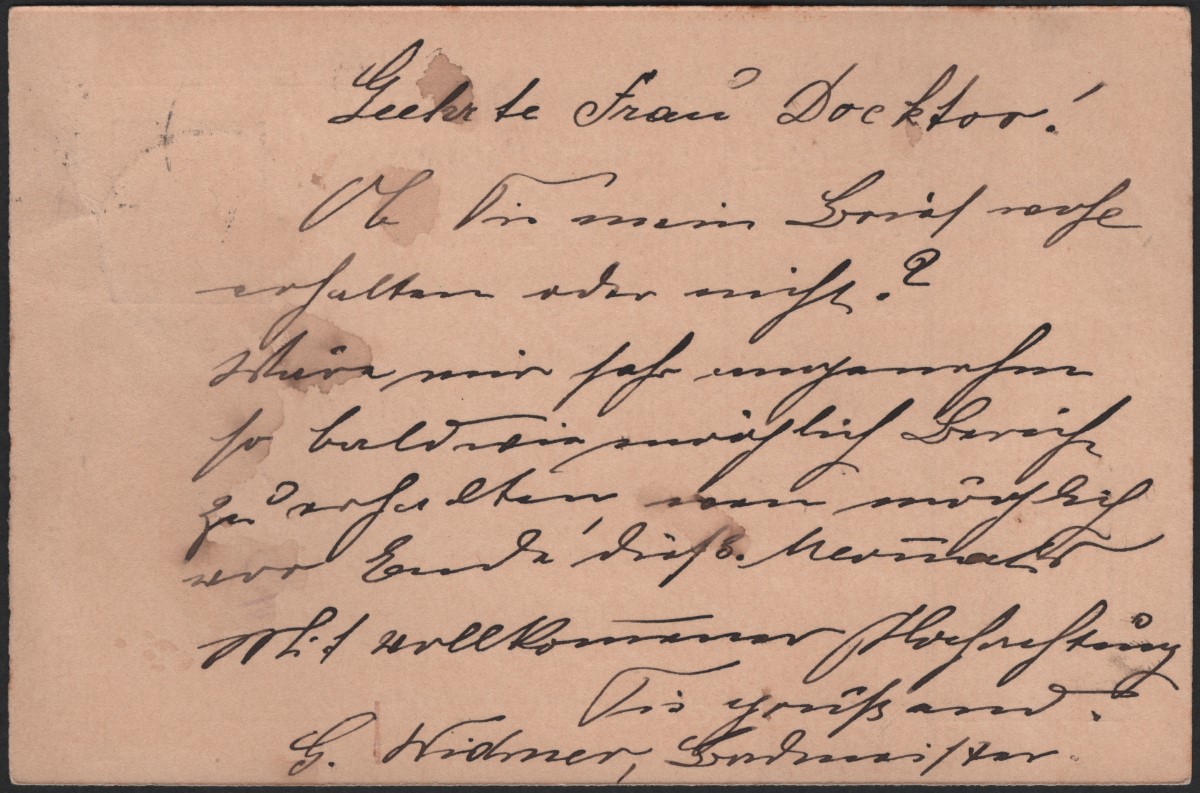 Geehrte Frau Docktor!
Ob Sie mein Brief wohl
erhalten oder nicht.?
Wäre mir sehr angenehm
so bald wie möglich Bericht
zu erhalten, wen möglich
vor Ende dieß. Monats
Mit vollkommener Hochachtung
Sie grüßend.
G. Widmer, Badmeister.